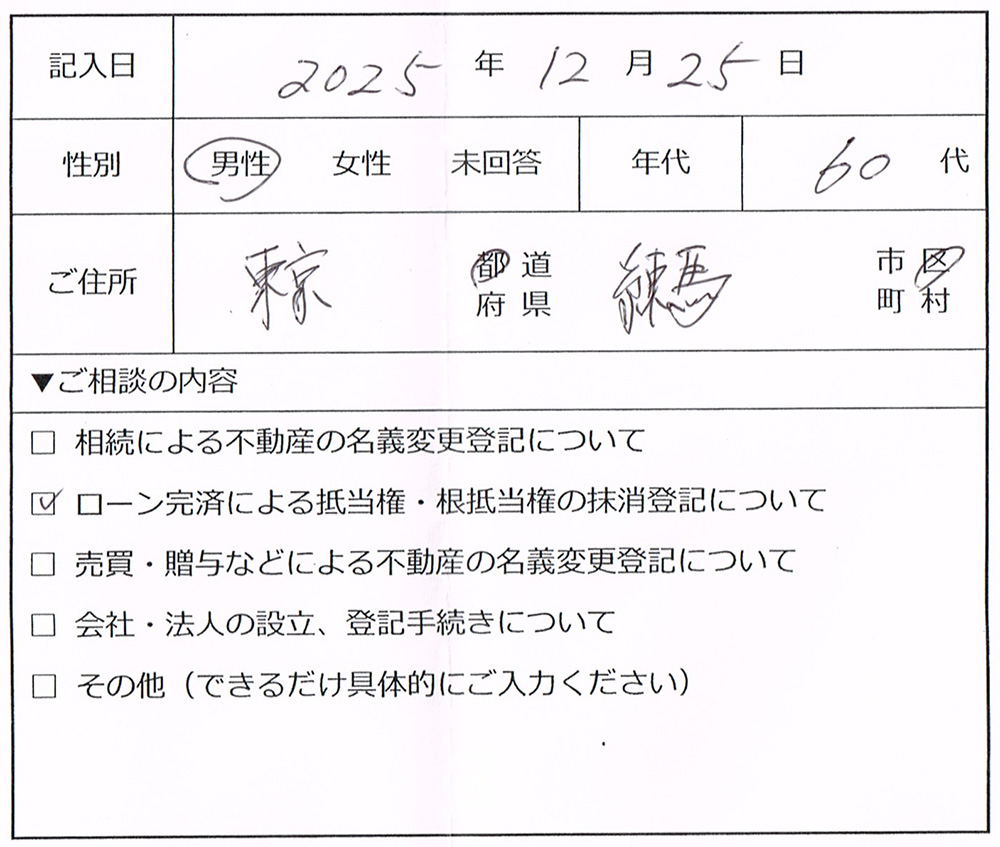 記入日 2025 年 12 月 25 日
性別 男性 女性 未回答 年代 60 代
ご住所 東京 都 道 府 県 練馬 市 区 町 村
▼ご相談の内容
□ 相続による不動産の名義変更登記について
☑ ローン完済による抵当権・根抵当権の抹消登記について
□ 売買・贈与などによる不動産の名義変更登記について
□ 会社・法人の設立、登記手続きについて
□ その他（できるだけ具体的にご入力ください）